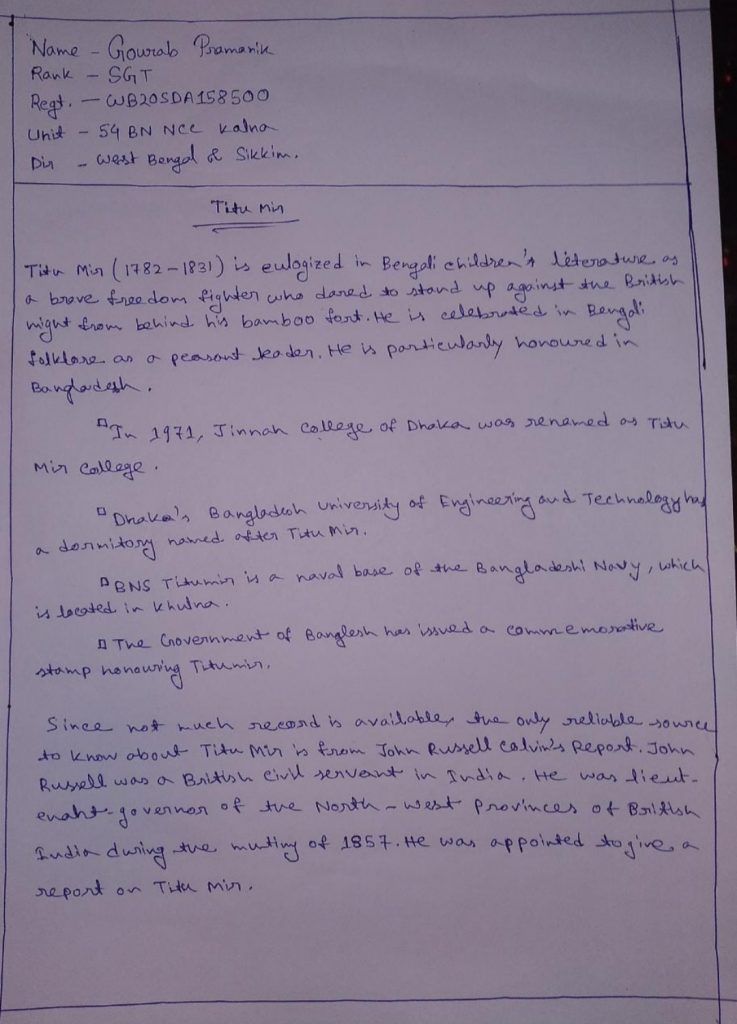 Name - Gourab Pramanik
Rank - SGT
Regt. - WB20SDA158500
Unit - 54 BN NCC Kalna
Dir - West Bengal & Sikkim.
Titu Mir
Titu Mir (1782-1831) is eulogized in Bengali children's literature as
a brave freedom fighter who dared to stand up against the British
might from behind his bamboo fort. He is celebrated in Bengali
folklore as a peasant leader. He is particularly honoured in
Bangladesh.
▫In 1971, Jinnah College of Dhaka was renamed as Titu
Mir College.
▫Dhaka's Bangladesh University of Engineering and Technology has
a dormitory named after Titu Mir.
▫BNS Titumir is a naval base of the Bangladeshi Navy, which
is located in Khulna.
▫The Government of Banglesh has issued a commemorative
stamp honouring Titumir.
Since not much record is available, the only reliable source
to know about Titu Mir is from John Russell Colvin's Report. John
Russell was a British civil servant in India. He was lieut-
enaht-governor of the North-West Provinces of British
India during the mutiny of 1857. He was appointed to give a
report on Titu Mir.